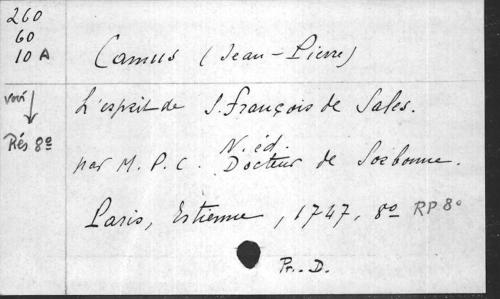 260
60
10 A
voir
Rés 8º
Camus (Jean-Pierre)
L'esprit de S. François de Sales.
N. éd.
par M. P. C. Docteur de Sorbonne.
Paris, Estienne, 1747, 8º RP 8º
Pr.-D.